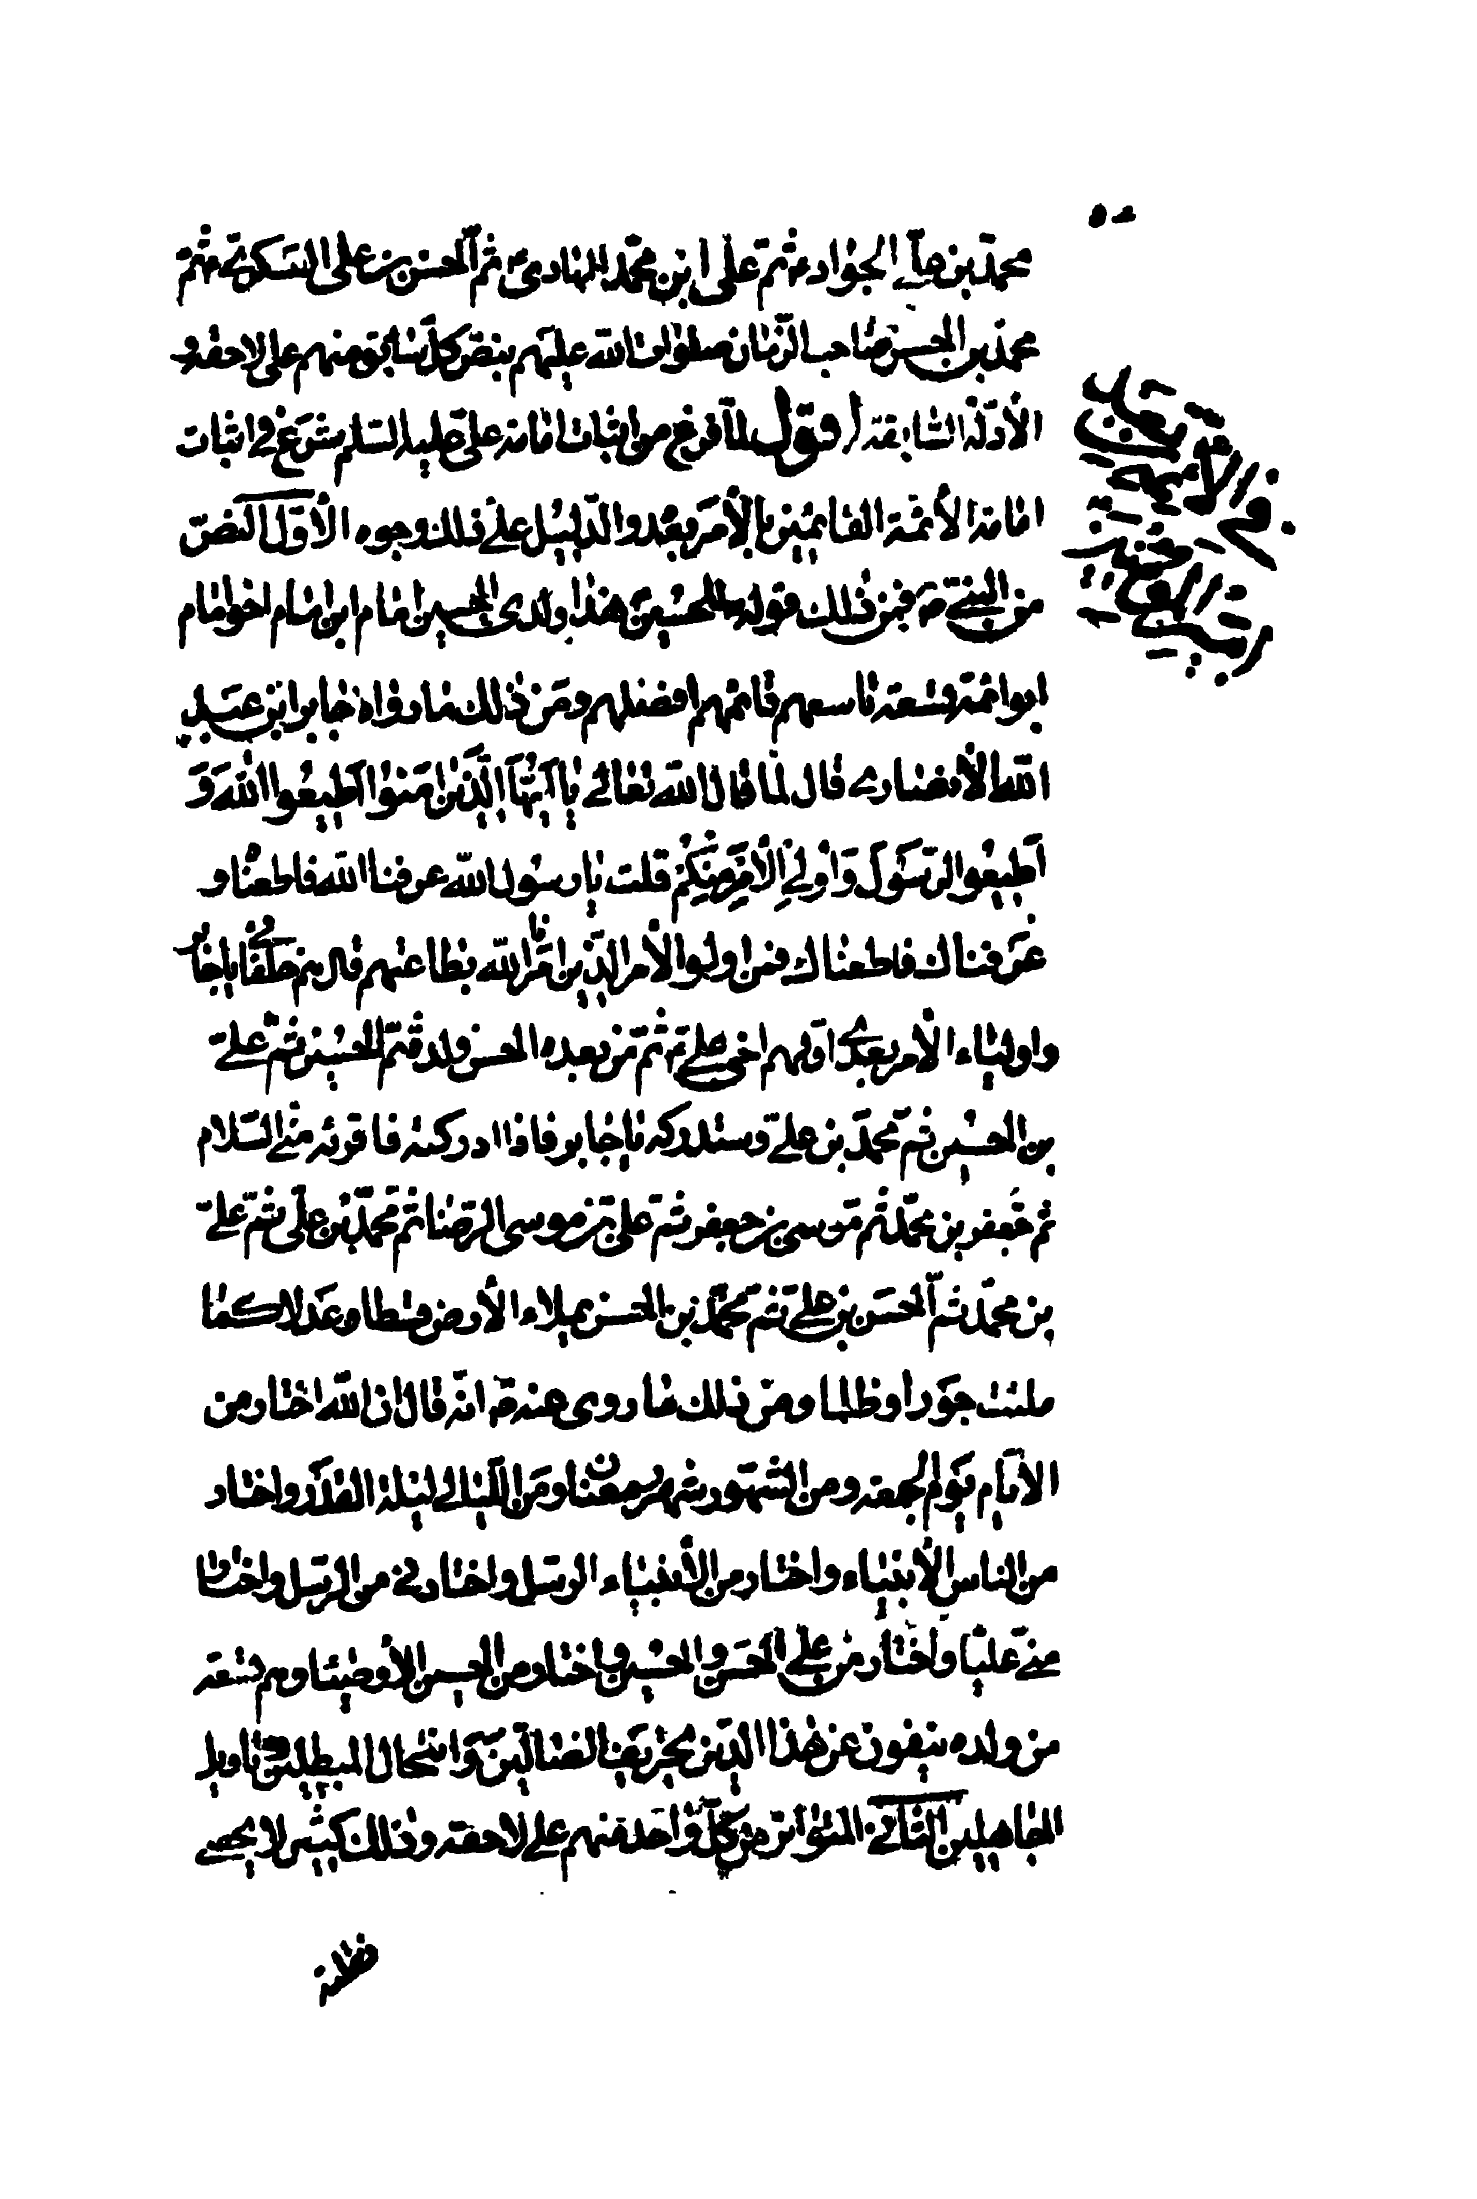 محمد بن علي الجواد ع ثم على ابن محمد الهادى ع ثم الحسن بن على العسكري ع ثم
محمد بن الحسن صاحب الزمان صلوات الله عليهم بنص كل سابق منهم على لاحقه و
الأدلة السابقه اقول لما فرغ من اثبات امامة على عليه السلم شرع في اثبات
امامة الأئمة القائمين بالأمر بعده والدليل على ذلك وجوه الأول النص
من النبي ص فمن ذلك قوله للحسين ع هذا ولدى الحسين امام ابن امام اخو امام
ابو ائمة تسعة تاسعهم قائمهم افضلهم ومن ذلك ما رواه جابر ابن عبد
الله الأنصاري قال لما قال الله تعالى يا ايها الذين امنوا اطيعوا الله و
اطيعوا الرسول واولي الأمر منكم قلت يا رسول الله عرفنا الله فاطعناه و
عرفناك فاطعناك فمن اولوا الأمر الذين امرنا الله بطاعتهم قال هم خلفائي يا جابر
واولياء الأمر بعدي اولهم اخى علي ثم من بعده الحسن ولده ثم الحسين ثم علي
بن الحسين ثم محمد بن علي وستدركه يا جابر فاذا ادركته فاقرئه مني السلام
ثم جعفر بن محمد ثم موسى بن جعفر ثم على بن موسى الرضا ثم محمد بن على ثم علي
بن محمد ثم الحسن بن علي ثم محمد بن الحسن يملاء الأرض قسطا وعدلا كما
ملئت جورا وظلما ومن ذلك ما روى عنه ص انه قال ان الله اختار من
الأيام يوم الجمعه ومن الشهور شهر رمضان ومن الليالي ليلة القدر واختار
من الناس الأنبياء واختار من الأنبياء الرسل واختارني من الرسل واختار
مني عليا واختار من علي الحسن والحسين واختار من الحسين الأوصياء وهم تسعة
من ولده ينفون عن هذا الدين تحريف الضالين وانتحال المبطلين وتاويل
الجاهلين الثاني المتواتر من كل واحد منهم على لاحقه وذلك كثير لا يحصى
في الأئمة